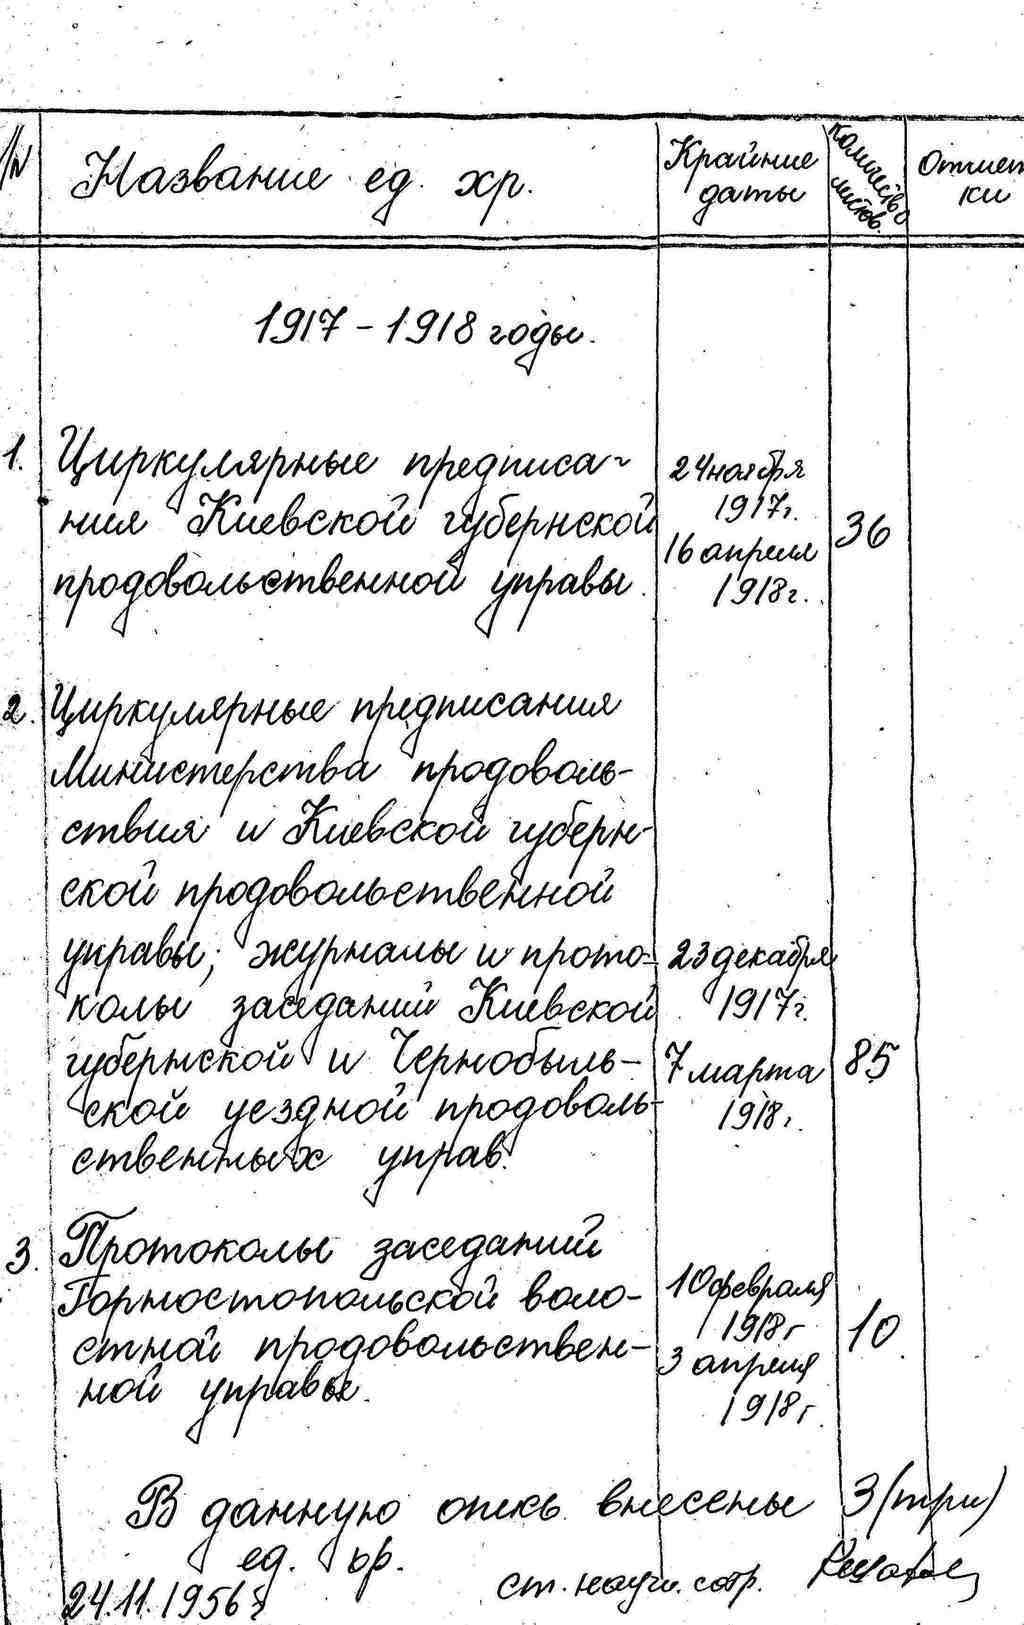 /п
Название ед. хр.
Крайние
даты
количество
листов.
Отмет
ки
1917 - 1918 годы.
1. Циркулярные предписа-
ния Киевской губернской
продовольственной управы.
24 ноября
1917г.
16 апреля
1918г.
36
2. Циркулярные предписания
Министерства продоволь-
ствия и Киевской губерн-
ской продовольственной
управы; журналы и прото-
колы заседаний Киевской
губернской и Чернобыль-
ской уездной продоволь-
ственных управ.
23 декабря
1917г.
7 марта
1918г.
85
3. Протоколы заседаний
Горностопольской воло-
стной продовольствен-
ной управы.
10 февраля
1918г
3 апреля
1918г.
10
В данную опись внесены 3 (три)
ед. хр.
24.11.1956г
ст. научн. сотр.